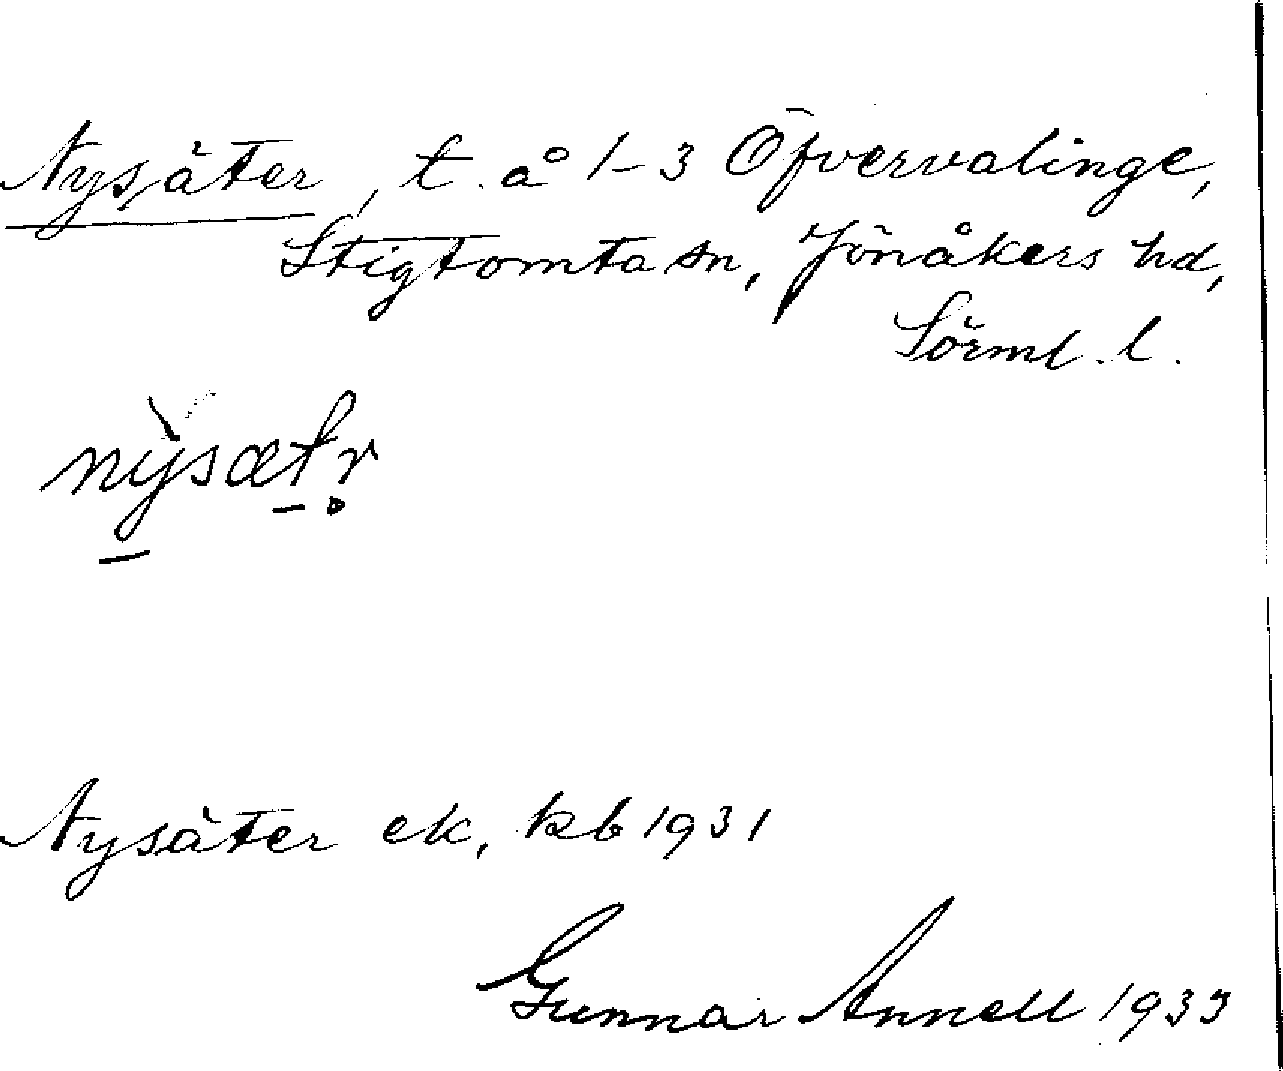 Nysäter, t. å 1-3 Öfvervalinge,
Stigtomta sn, Jönåkers hd,
Sörml. l.
nỳsætr̥
Nysäter ek, kb 1931
Gunnar Annell 1933